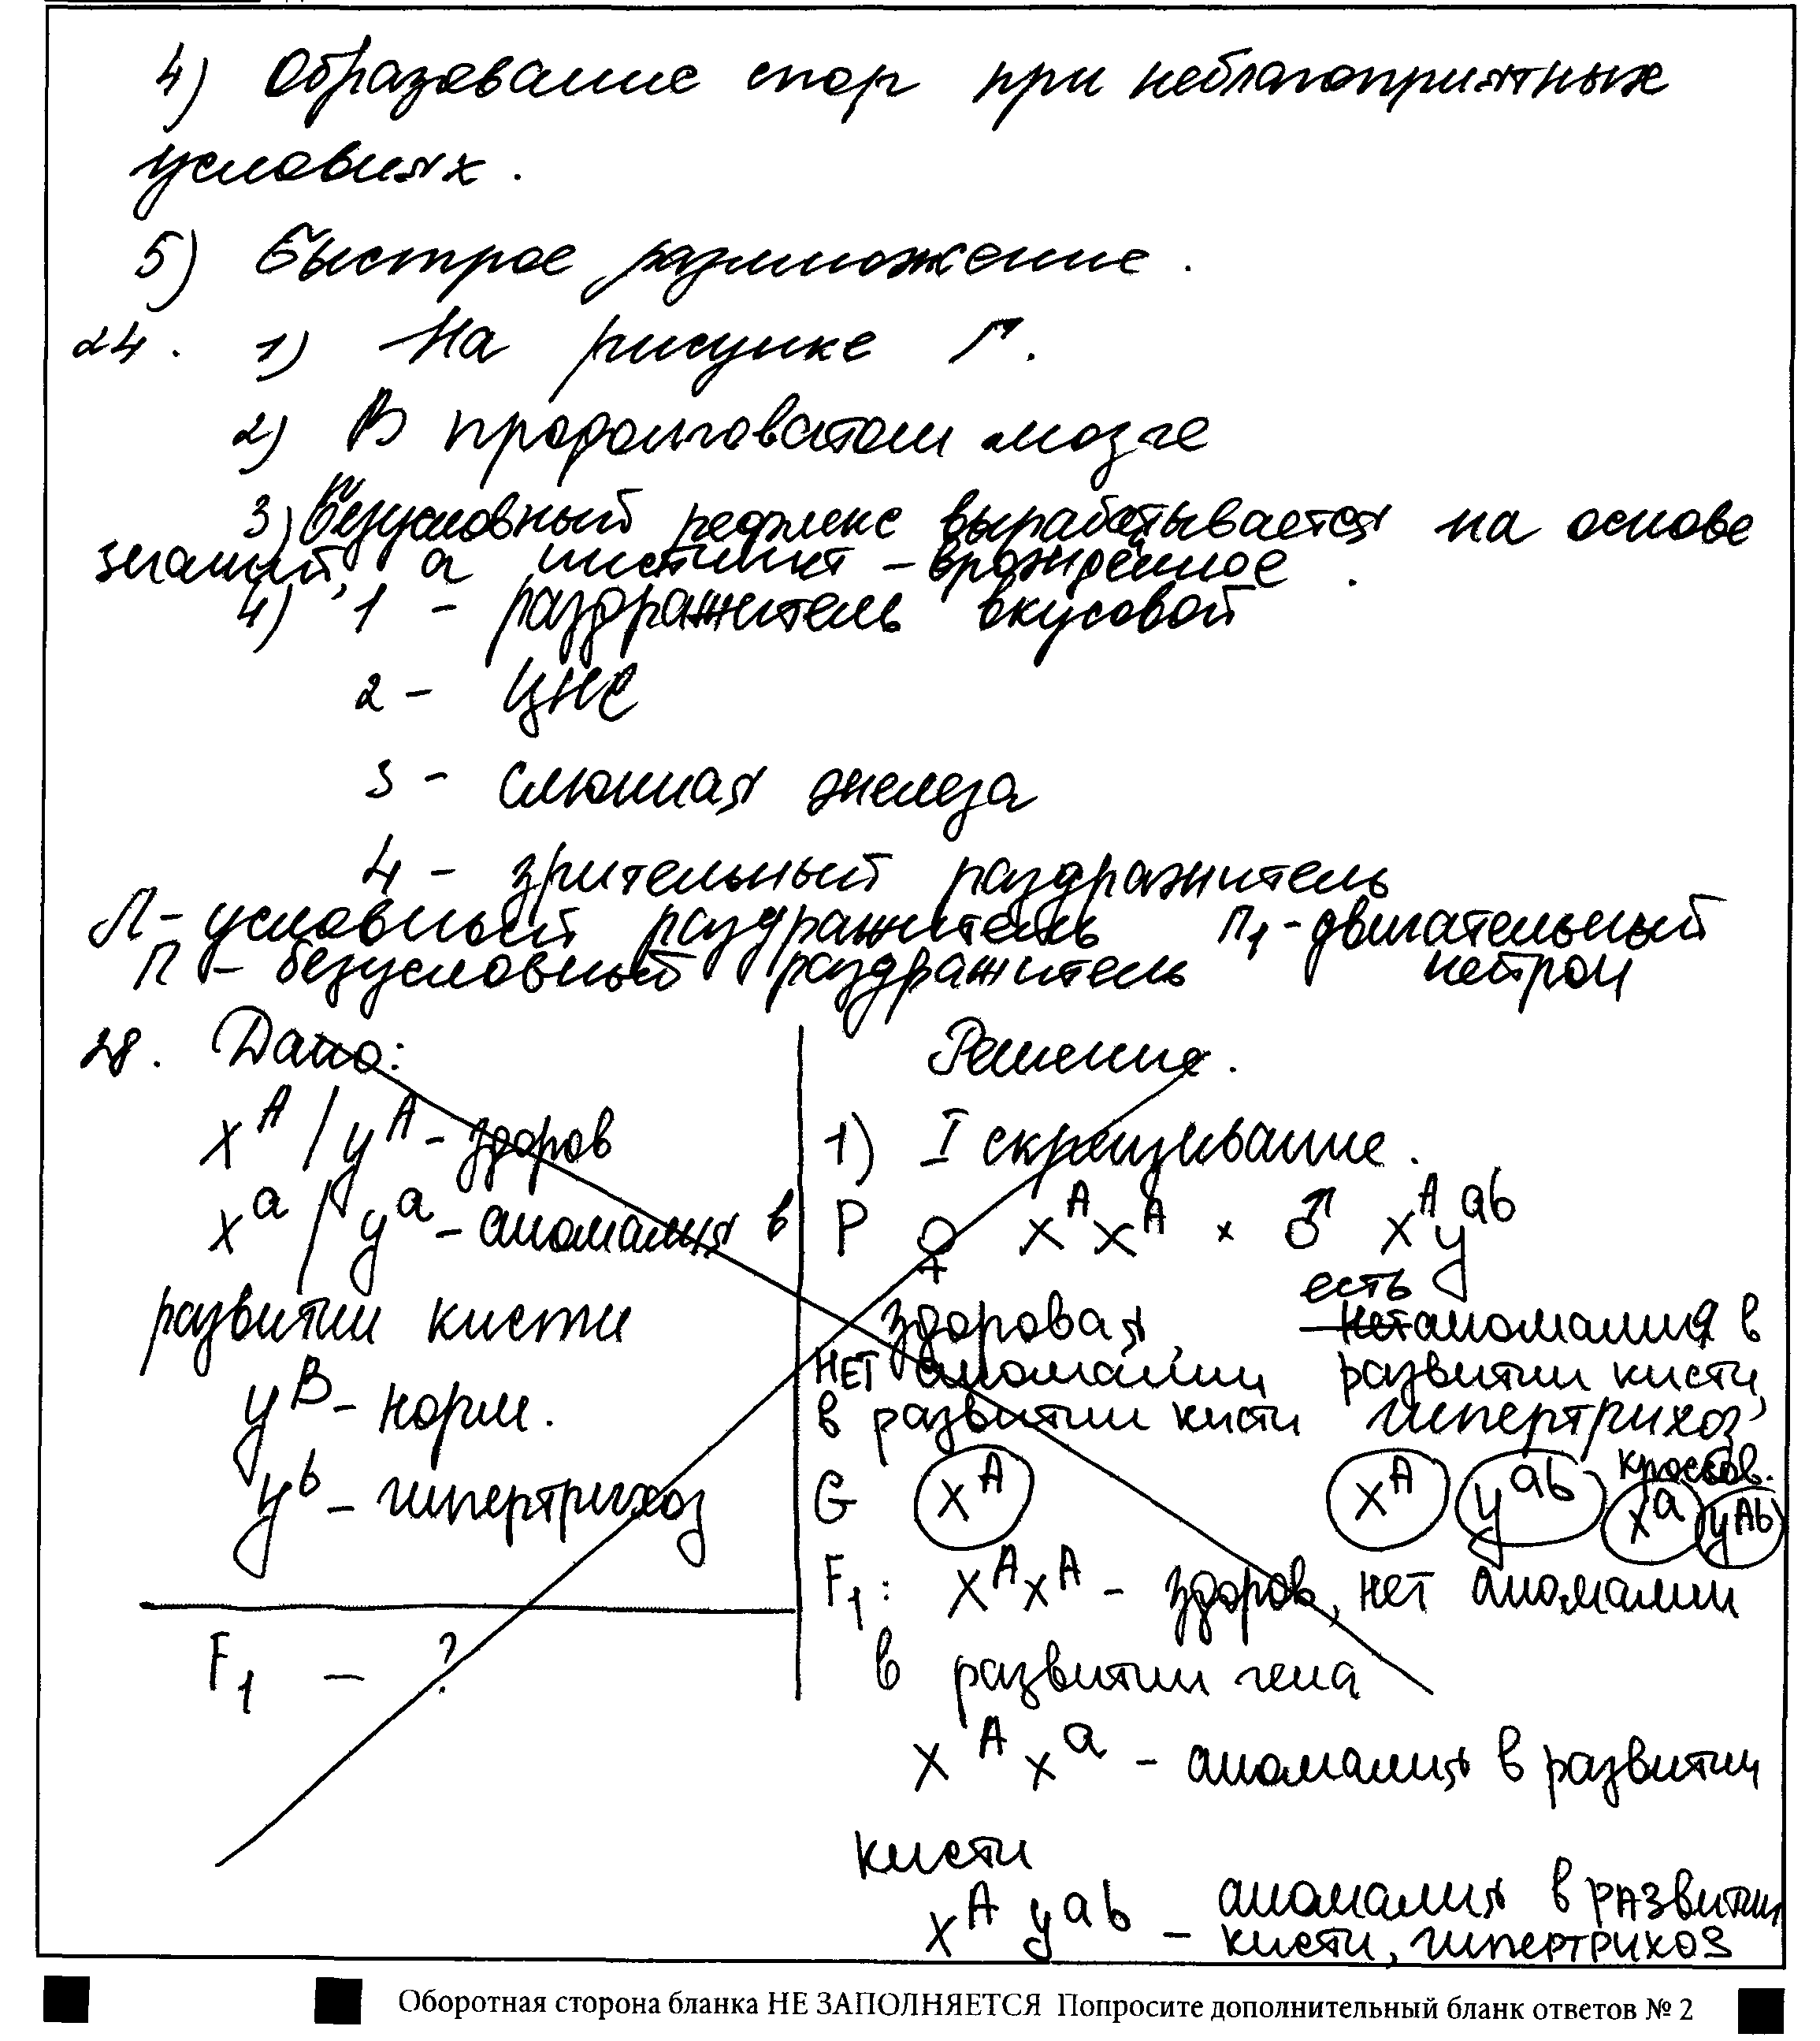 4) Образование спор при неблагоприятных
условиях.
5) Быстрое размножение.
24. 1) На рисунке Г.
2) В продолговатом мозге
3) Безусловный рефлекс вырабатывается на основе
знаний, а инстинкт – врождённое.
4) 1 – раздражитель вкусовой
2 – ЦНС
3 – слюнная железа
4 – зрительный раздражитель
Л – условный раздражитель П1 – двигательный
П – безусловный раздражитель нейрон
28. Дано:
X^A / y^A – здоров
X^a / y^a – аномалия в
развитии кисти
y^B – норм.
y^b – гипертрихоз
F1 – ?
Решение.
1) I скрещивание.
P ♀ X^A X^A × ♂ X^A y^ab
есть
здоровая, нет аномалия в
НЕТ аномалии развитии кисти,
в развитии кисти гипертрихоз
кроссов.
G X^A X^A y^ab X^a y^Ab
F1: X^A X^A – здоров, нет аномалии
в развитии гена
X^A X^a – аномалия в развитии
кисти
X^A y^ab – аномалия в развитии
кисти, гипертрихоз
Оборотная сторона бланка НЕ ЗАПОЛНЯЕТСЯ Попросите дополнительный бланк ответов № 2